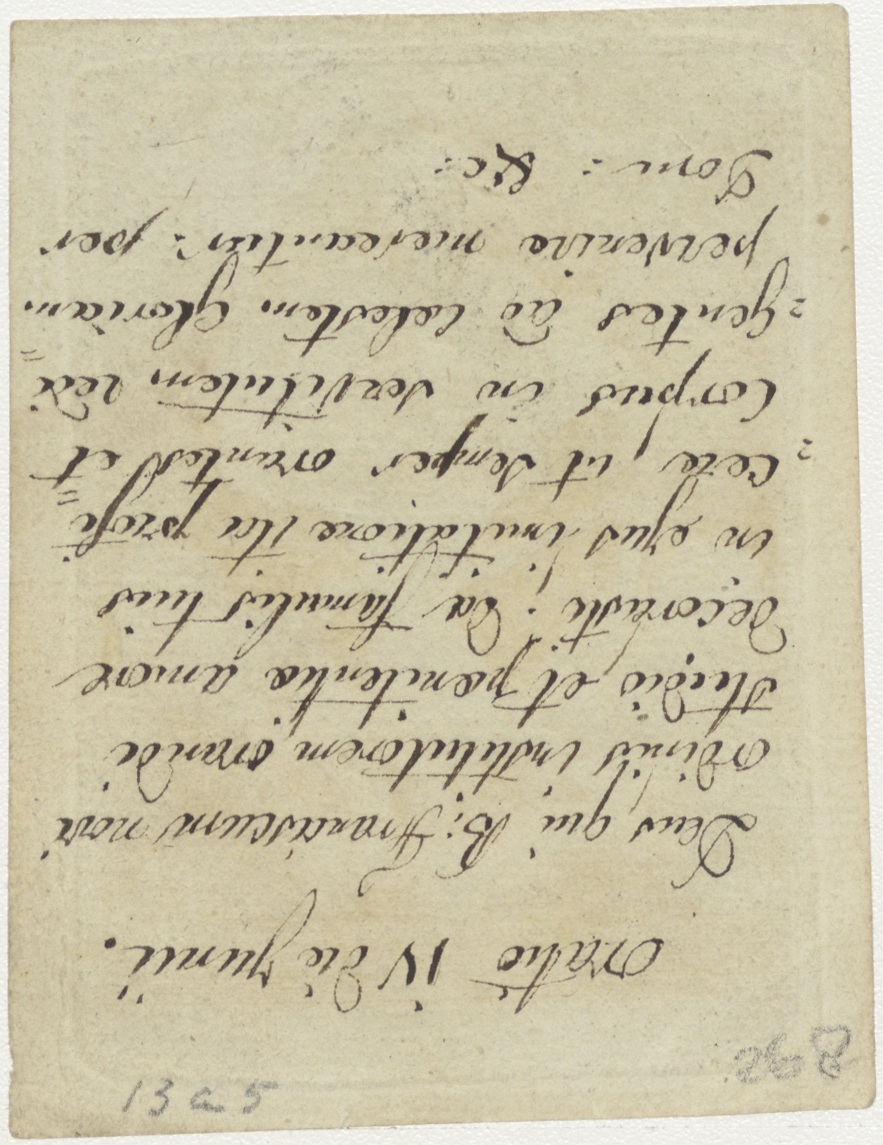 Oratio IV die Junii.
Deus qui B: Franciscum novi
ordinis institutorem orandi
studio et pœnitentia amore
decorasti: da famulis tuis
in ejus imitatione ita profi=
=cere, ut semper orantes et
Corpus in servitutem redi=
=gentes ad Celestem Gloriam
pervenire mereantur: per
Dom: &c:
13 a 5